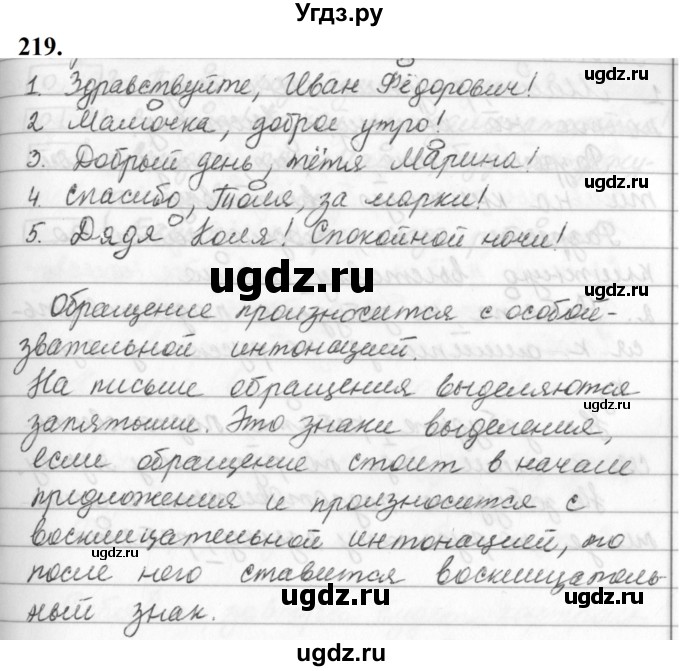 Угдз.ру
219.
1. Здравствуйте, Иван Фёдорович!
2 Мамочка, доброе утро!
3. Добрый день, тётя Марина!
4. Спасибо, Толя, за марки!
5. Дядя Коля! Спокойной ночи!
Обращение произносится с особой-
звательной интонацией.
На письме обращения выделяются
запятыми. Это знаки выделения,
если обращение стоит в начале
придложения и произносится с
восклицательной интонацией, то
после него ставится восклицатель-
ный знак.
ugdz.ru
ugdz.ru
ugdz.ru
ugdz.ru
ugdz.ru
ugdz.ru
ugdz.ru
ugdz.ru
ugdz.ru
ugdz.ru